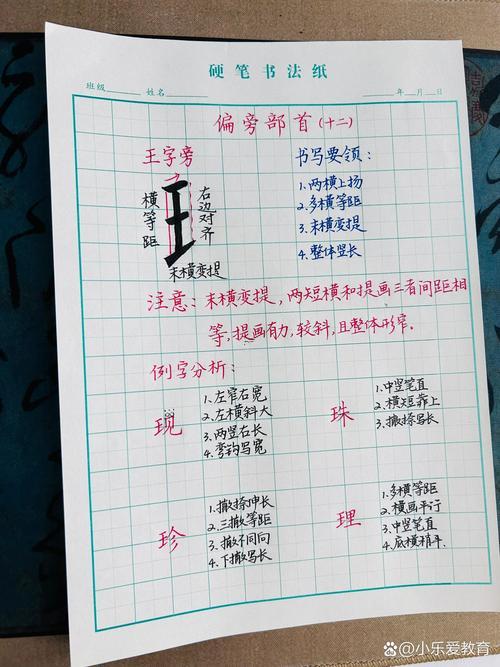 硬笔书法纸
班级 姓名 年 月 日
偏旁部首(十二)
王字旁
横等距
右边对齐
末横变提
书写要领:
1.两横上扬
2.多横等距
3.末横变提
4.整体竖长
注意:末横变提,两短横和提画三者间距相
等,提画有力,较斜,且整体形窄.
例字分析:
现
1.左窄右宽
2.左横斜大
3.两竖右长
4.弯钩写宽
珠
1.中竖笔直
2.横短靠上
3.撇捺写长
珍
1.撇捺伸长
2.三撇等距
3.撇不同向
4.下撇写长
理
1.多横等距
2.横画平行
3.中竖笔直
4.底横稍平
@小乐爱教育